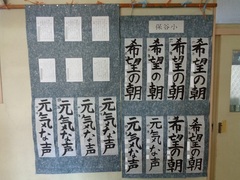 深谷小
希望の朝
希望の朝
希望の朝
希望の朝
元気な声
元気な声
元気な声
元気な声
元気な声
元気な声
希望の朝
希望の朝